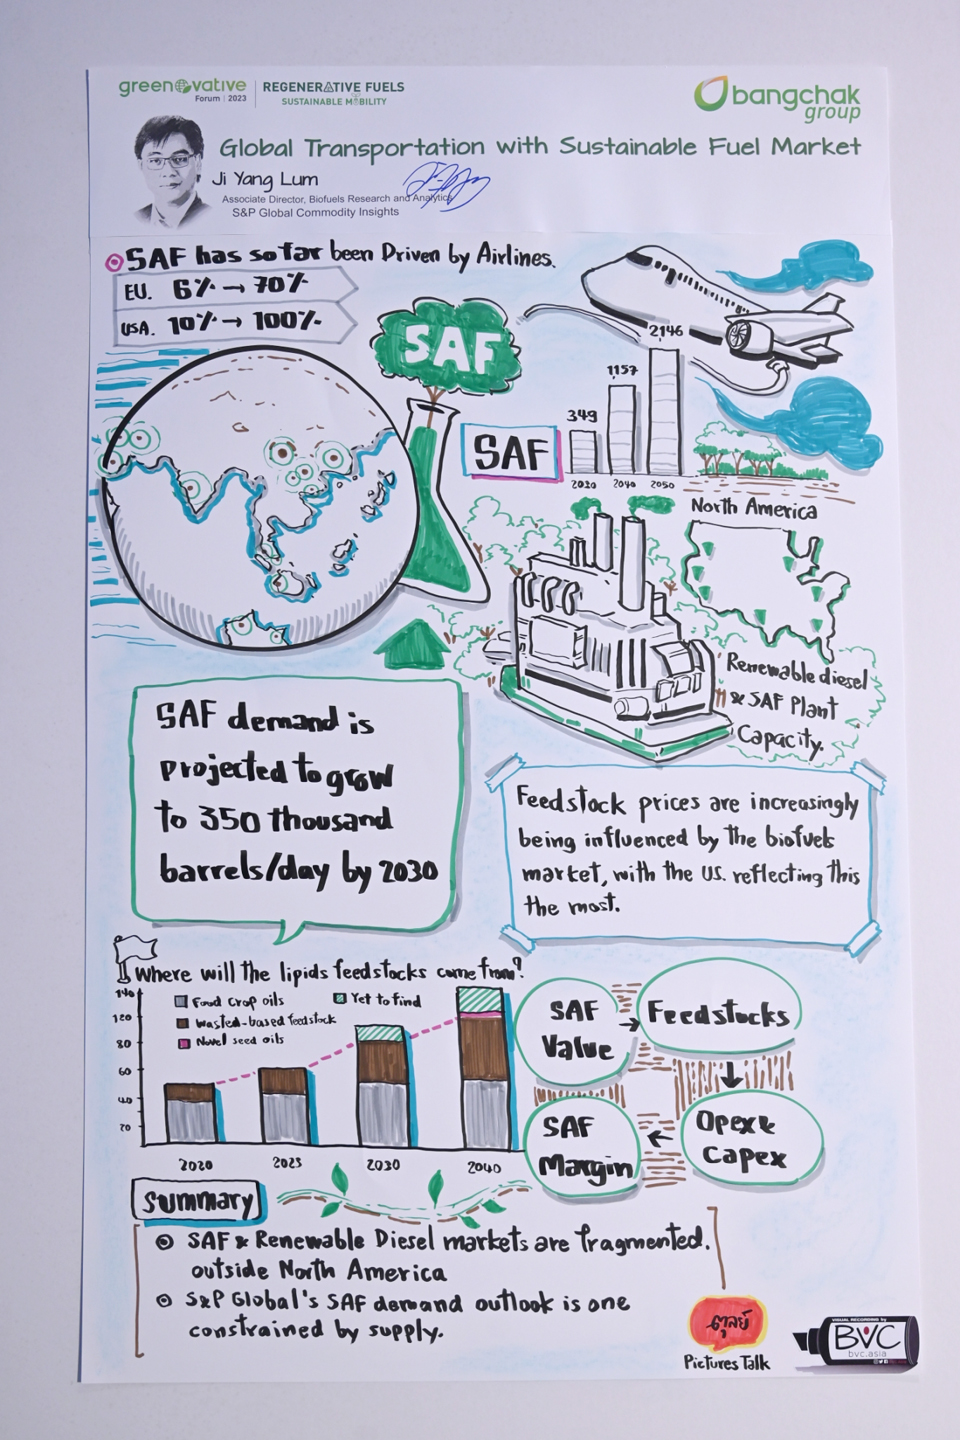 greenovative
Forum | 2023
REGENERATIVE FUELS
SUSTAINABLE MOBILITY
bangchak
group
Global Transportation with Sustainable Fuel Market
Ji Yang Lum
Associate Director, Biofuels Research and Analytics
S&P Global Commodity Insights
SAF has so far been Driven by Airlines.
EU. 6% → 70%
USA. 10% → 100%
SAF
SAF
349
1,157
2146
2030 2040 2050
North America
Renewable diesel
& SAF Plant
Capacity.
SAF demand is
projected to grow
to 350 thousand
barrels/day by 2030
Feedstock prices are increasingly
being influenced by the biofuels
market, with the US. reflecting this
the most.
Where will the lipids feedstocks come from?
Food crop oils
Yet to find
Wasted-based feedstock
Novel seed oils
140
120
80
60
40
20
2020 2025 2030 2040
SAF
Value
→
Feedstocks
↓
Opex &
Capex
←
SAF
Margin
Summary
SAF & Renewable Diesel markets are fragmented.
outside North America
S&P Global's SAF demand outlook is one
constrained by supply.
ตุลย์
Pictures Talk
VISUAL RECORDING by
BVC
bvc.asia